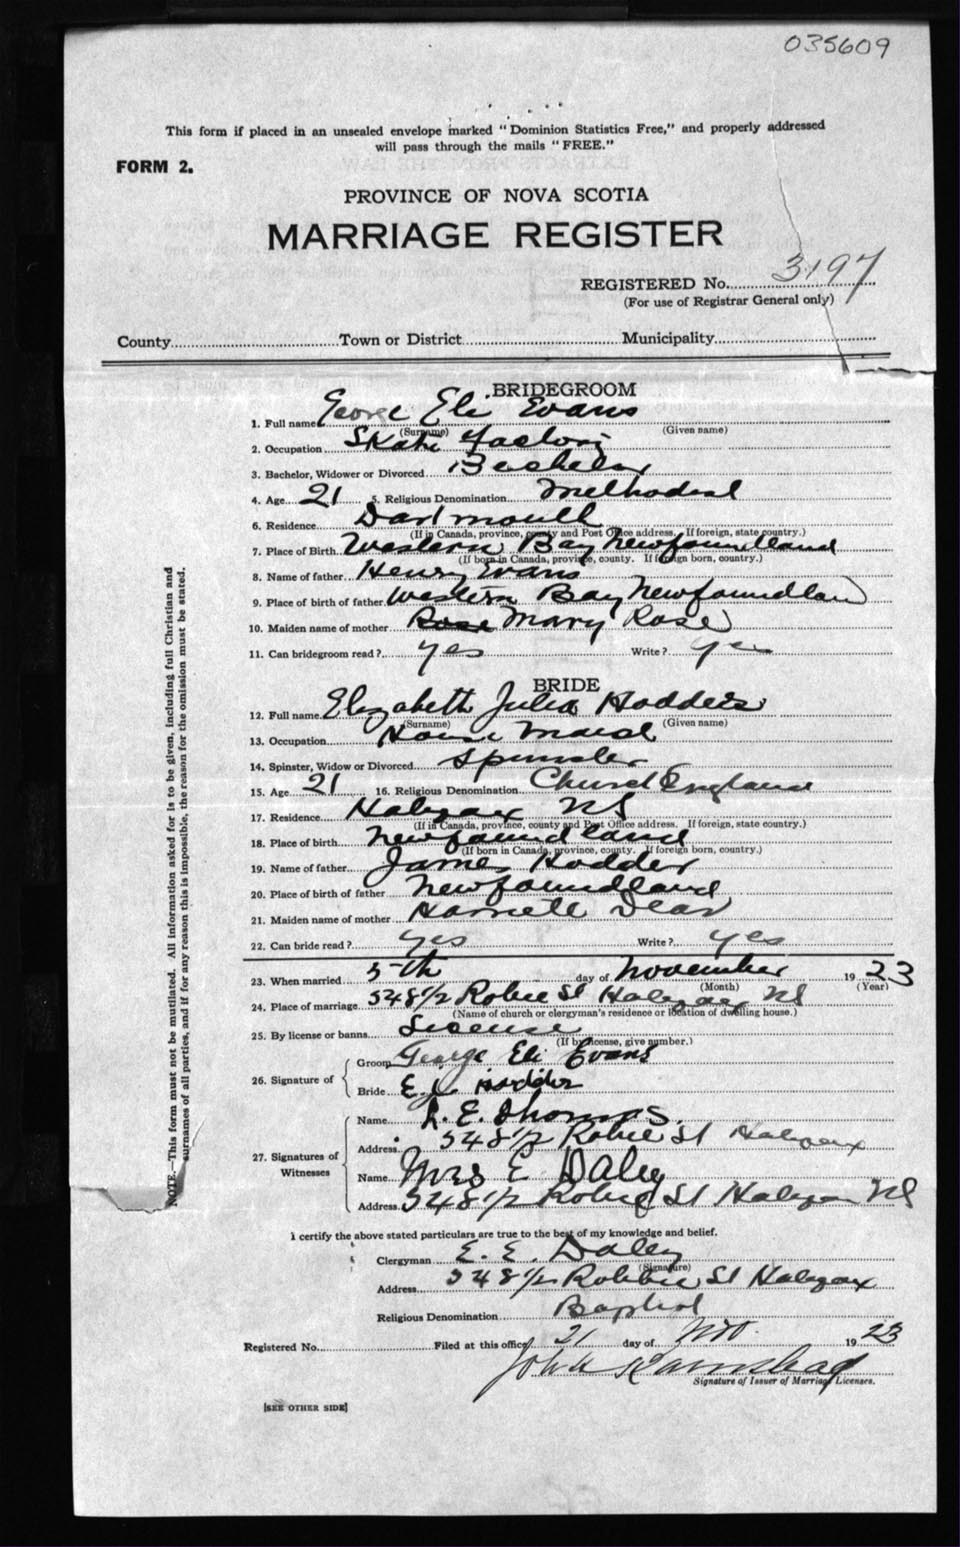 035609
This form if placed in an unsealed envelope marked "Dominion Statistics Free," and properly addressed
will pass through the mails "FREE."
FORM 2.
PROVINCE OF NOVA SCOTIA
MARRIAGE REGISTER
REGISTERED No. 3197
(For use of Registrar General only)
County Town or District Municipality
BRIDEGROOM
1. Full name George Eli Evans
(Surname) (Given name)
2. Occupation Skate Factory
3. Bachelor, Widower or Divorced Bachelor
4. Age 21 5. Religious Denomination Methodist
6. Residence Dartmouth
(If in Canada, province, county and Post Office address. If foreign, state country.)
7. Place of Birth Western Bay Newfoundland
(If born in Canada, province, county. If foreign born, country.)
8. Name of father Henry Evans
9. Place of birth of father Western Bay Newfoundlan
10. Maiden name of mother Rose Mary Rose
11. Can bridegroom read? yes Write? yes
BRIDE
12. Full name Elizabeth Julia Hodders
(Surname) (Given name)
13. Occupation House Maid
14. Spinster, Widow or Divorced Spinster
15. Age 21 16. Religious Denomination Church England
17. Residence Halifax NS
(If in Canada, province, county and Post Office address. If foreign, state country.)
18. Place of birth Newfoundland
(If born in Canada, province, county. If foreign born, country.)
19. Name of father James Hodder
20. Place of birth of father Newfoundland
21. Maiden name of mother Harriett
22. Can bride read? yes Write? yes
23. When married 5th day of November 1923
(Month) (Year)
24. Place of marriage 348 1/2 Robie St Halifax NS
(Name of church or clergyman's residence or location of dwelling house.)
25. By license or banns License
(If by license, give number.)
26. Signature of
Groom George Eli Evans
Bride E. J. Hodder
27. Signatures of Witnesses
Name R. E. Thomas.
Address. 348 1/2 Robie St Halifax
Name Mrs E Daley
Address 348 1/2 Robie St Halifax NS
I certify the above stated particulars are true to the best of my knowledge and belief.
Clergyman E. E. Daley
(Signature)
Address 348 1/2 Robbie St Halifax
Religious Denomination Baptist
Registered No. Filed at this office 21 day of Nov. 1923
John
Signature of Issuer of Marriage Licenses.
[SEE OTHER SIDE]
NOTE.—This form must not be mutilated. All information asked for is to be given, including full Christian and
surnames of all parties, and if for any reason this is impossible, the reason for the omission must be stated.